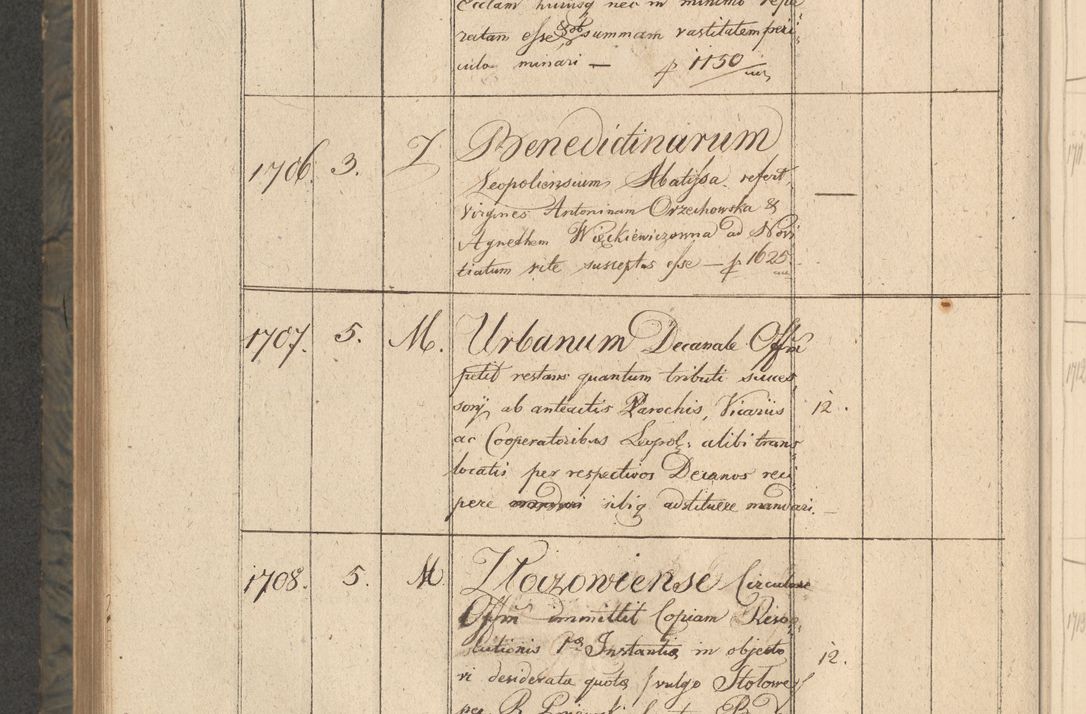 ratam esse & ob summam vastitatem peri
culo minari — p 1150
1706. 3. Benedictinarum
Leopoliensium Abatissa refert,
Virgines Antoninam Orzechowska &
Agnethem Więckiewiczowna ad Novi
tiatum rite susceptas esse — p 1625 —
1707. 5. M. Urbanum Decanale Offm
petit restans quantum tributi succes
sory ab anteactis Parochis, Vicariis 12.
ac Cooperatoribus Leopol: alibi trans
locatis per respectivos Decanos reci
pere sibiq adstituere mandari. —
1708. 5. M Złoczowiense Circulare
Offm immittit Copiam Reso
lutionis 1ae Instantiae in objecto 12.
ri desiderata quota (vulgo Stołowe)
per R.